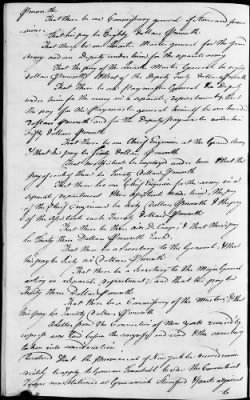 ⅌ month.
That there be one Commissary general of stores and provisions
That his pay be Eighty Dollars ⅌ month.
That there be one Quarter Master general for the grand
army and one Deputy under him for the separate army
That the pay of the Quarter Master General be eighty
dollars ⅌ month & that of the Deputy forty Dollars ⅌ month
That there be one Paymaster General & a Deputy
under him for the army in a separate department; that
the pay of the Paymaster general be one hundred
Dollars ⅌ month and for the Deputy paymaster under him
fifty Dollars ⅌ month
That there be one Chief Engineer at the Grand Army
& that his pay be Sixty Dollars ⅌ month
That two Assistants be employed under him & that the
pay of each of them be twenty Dollars ⅌ month
That there be one Chief Engineer for the army in a
separate department & two Assistants under him, the pay
of the chief Engineer be sixty Dollars ⅌ month & the pay
of the Assistants each twenty Dollars ⅌ month
That there be three Aids De Camps & that their pay
be thirty three Dollars ⅌ month Each.
That there be a secretary to the General & that
his pay be Sixty six Dollars ⅌ month
That there be a Secretary to the Major General
acting in a separate department; and that his pay be
thirty three Dollars ⅌ month
That there be a Commissary of the Musters & that
his pay be forty Dollars ⅌ month
A letter from the Convention of New York received by
express was laid before the congress and read &
taken into consideration
Resolved That the Provincial of New York be recommended
to apply to Governor Trumbull to order the Connecticut
Troops now stationed at Greenwich Stamford & parts adjacent
to